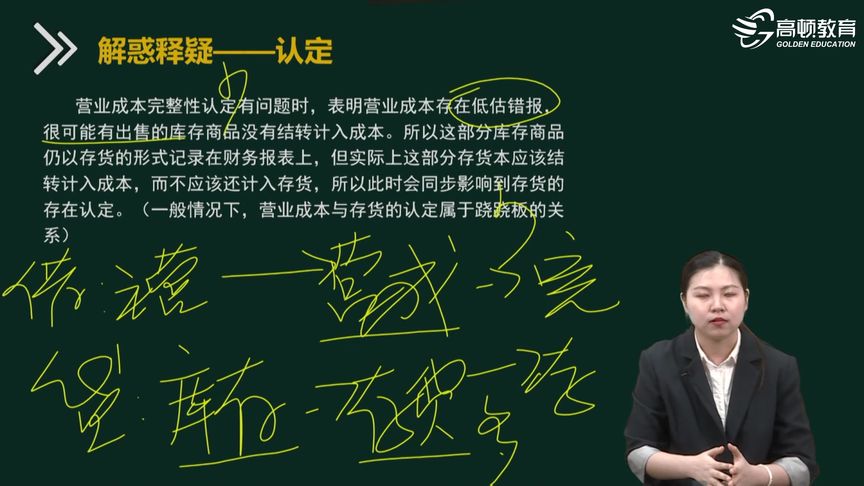 高顿教育
GOLDEN EDUCATION
解惑释疑——认定
营业成本完整性认定有问题时，表明营业成本存在低估错报，
很可能有出售的库存商品没有结转计入成本。所以这部分库存商品
仍以存货的形式记录在财务报表上，但实际上这部分存货本应该结
转计入成本，而不应该还计入存货，所以此时会同步影响到存货的
存在认定。（一般情况下，营业成本与存货的认定属于跷跷板的关
系）
少
借：主营——营成→完
贷：库存—存货→存
多